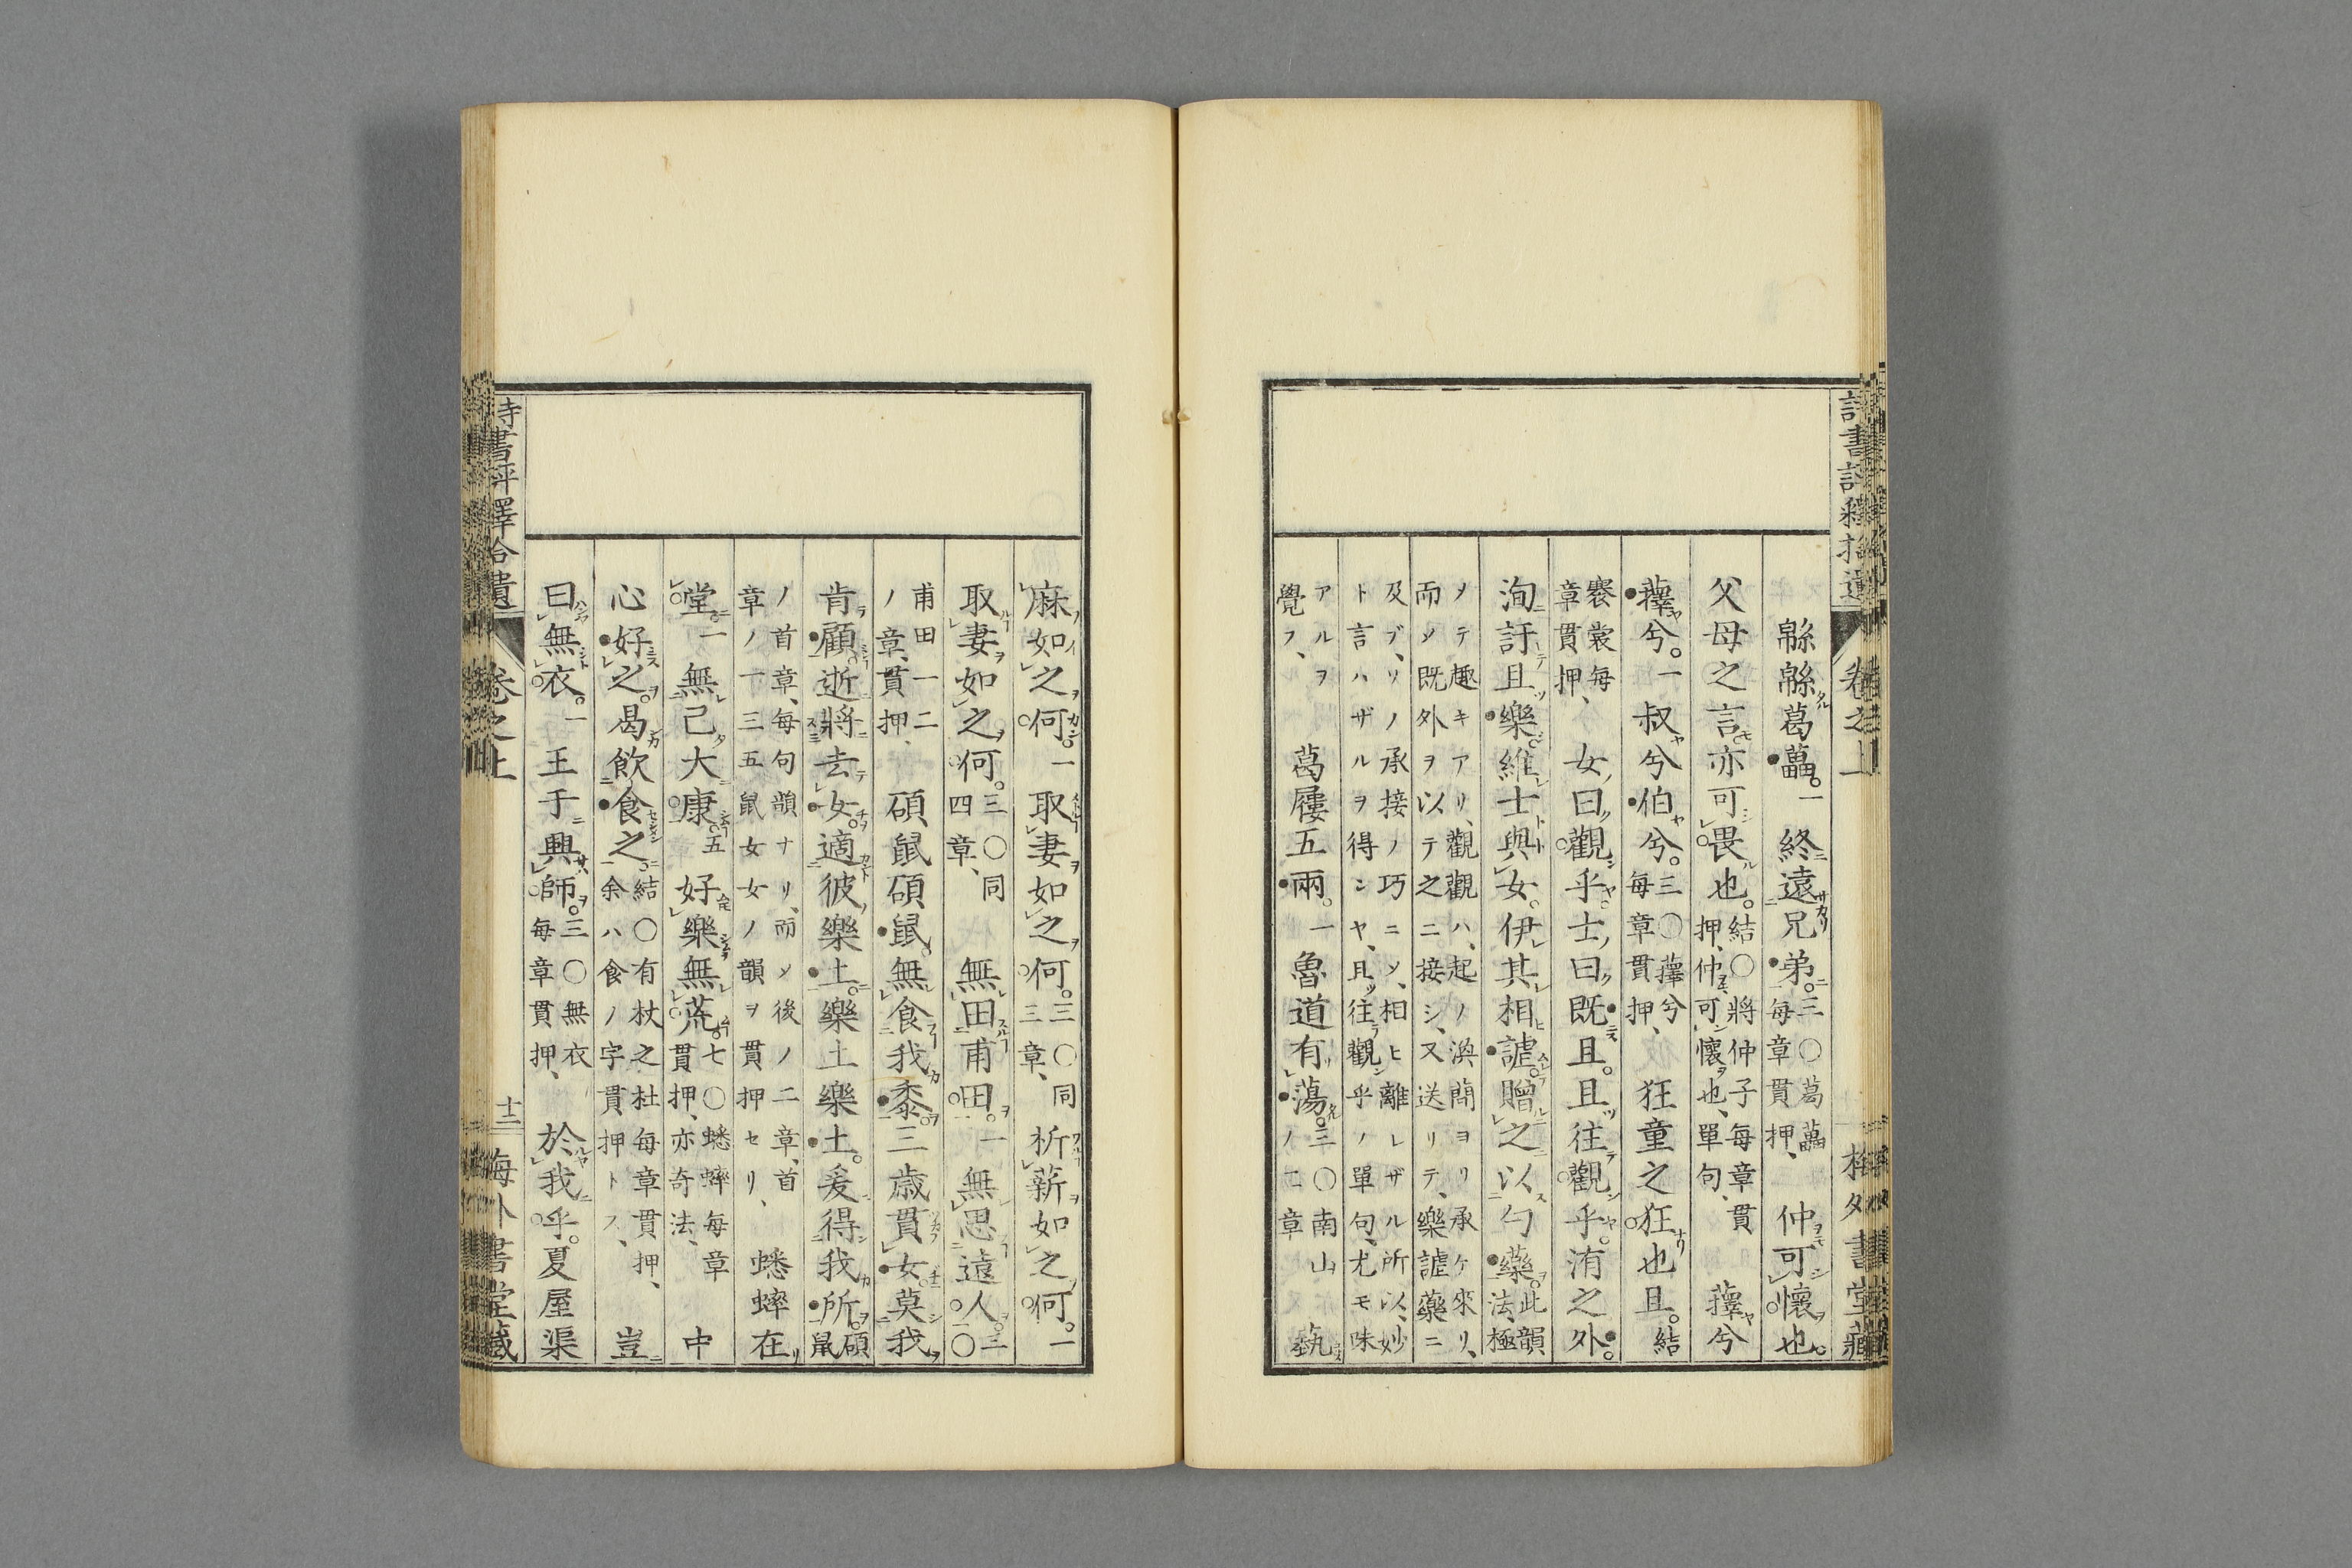 詩書評釋拾遺 卷之上 梅外書堂藏
緜緜葛藟。一 終遠兄弟。三〇葛藟每章貫押、 仲可懷也。
父母之言亦可畏也。結〇將仲子每章貫押、仲可懷也、單句、 蘀兮
蘀兮。一 叔兮伯兮。三〇蘀兮每章貫押、 狂童之狂也且。結
褰裳每章貫押、 女曰觀乎。士曰既且。且往觀乎。洧之外。
洵訏且樂。維士與女。伊其相謔。贈之以勺藥。此韻法、極
メテ趣キアリ、觀觀ハ、起ノ渙蕑ヨリ承ケ來リ、
而〆既外ヲ以テ之ニ接シ、又送リテ、樂謔藥ニ
及ブ、リノ承接ノ巧ニ〆、相ヒ離レザル所以、妙
ト言ハザルヲ得ンヤ、且ツ往觀乎ノ單句、尤モ味
アルヲ覺フ、 葛屨五兩。一 魯道有蕩。三〇南山ノ二章 蓺
麻如之何。一 取妻如之何。三〇同三章、 析薪如之何。一
取妻如之何。三〇同四章、 無田甫田。一 無思遠人。三〇
甫田一二ノ章、貫押、 碩鼠碩鼠。無食我黍。三歳貫女。莫我
肯顧。逝將去女。適彼樂土。樂土樂土。爰得我所。碩鼠
ノ首章、每句韻ナリ、而〆後ノ二章、首章ノ一三五鼠女女ノ韻ヲ貫押セリ、 蟋蟀在
堂。一 無已大康。五 好樂無荒。七〇蟋蟀每章貫押、亦奇法、 中
心好之。曷飲食之。結〇有杕之杜每章貫押、一余ハ食ノ字貫押トス、 豈
曰無衣。一 王于興師。三〇無衣每章貫押、 於我乎。夏屋渠
詩書評釋拾遺 卷之上 十二 梅外書堂藏